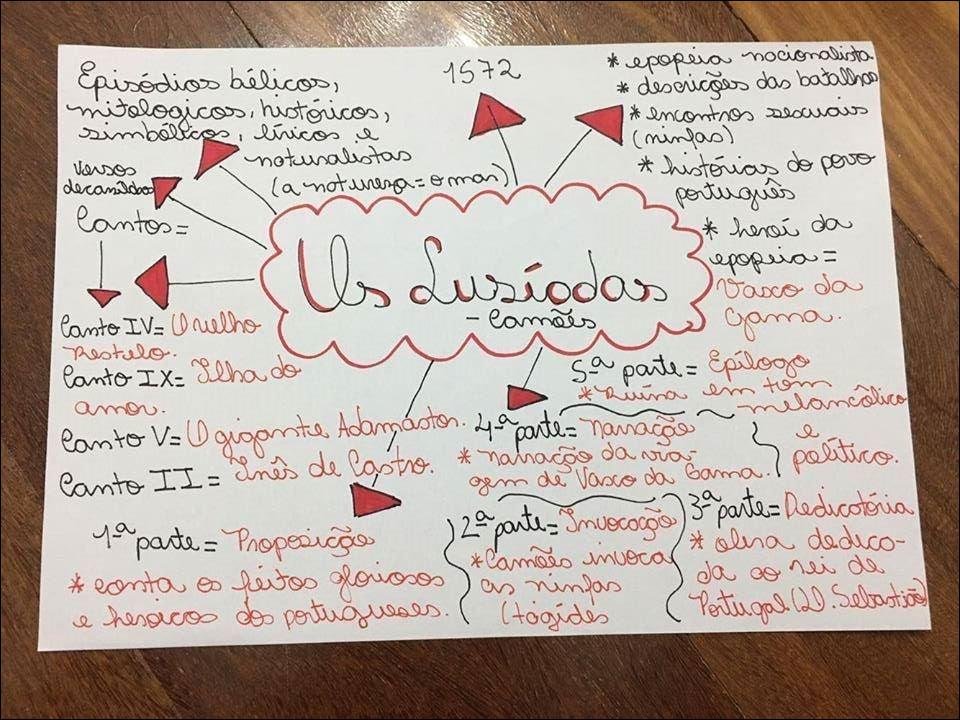 Episódios bélicos,
mitologicos, históricos,
simbólicos, líricos e
naturalistas
(a natureza = o mar)
1572
* epopeia nacionalista
* descrições das batalhas
* encontros sexuais
(ninfas)
* histórias do povo
português
* herói da
epopeia =
Vasco da
Gama.
versos
decassílabos
Cantos =
Os Lusíadas
- Camões
Canto IV = O velho
Restelo.
Canto IX = Ilha do
amor.
Canto V = O gigante Adamastor.
Canto II = Inês de Castro.
1ª parte = Proposição
* conta os feitos gloriosos
e heroicos dos portugueses.
2ª parte = Invocação
* Camões invoca
as ninfas
(tágides
3ª parte = Dedicatória
* obra dedica-
da ao rei de
Portugal (D. Sebastião)
4ª parte = Narração
* narração da via-
gem de Vasco da Gama.
5ª parte = Epílogo
* Ruína em tom
melancólico
e
político.